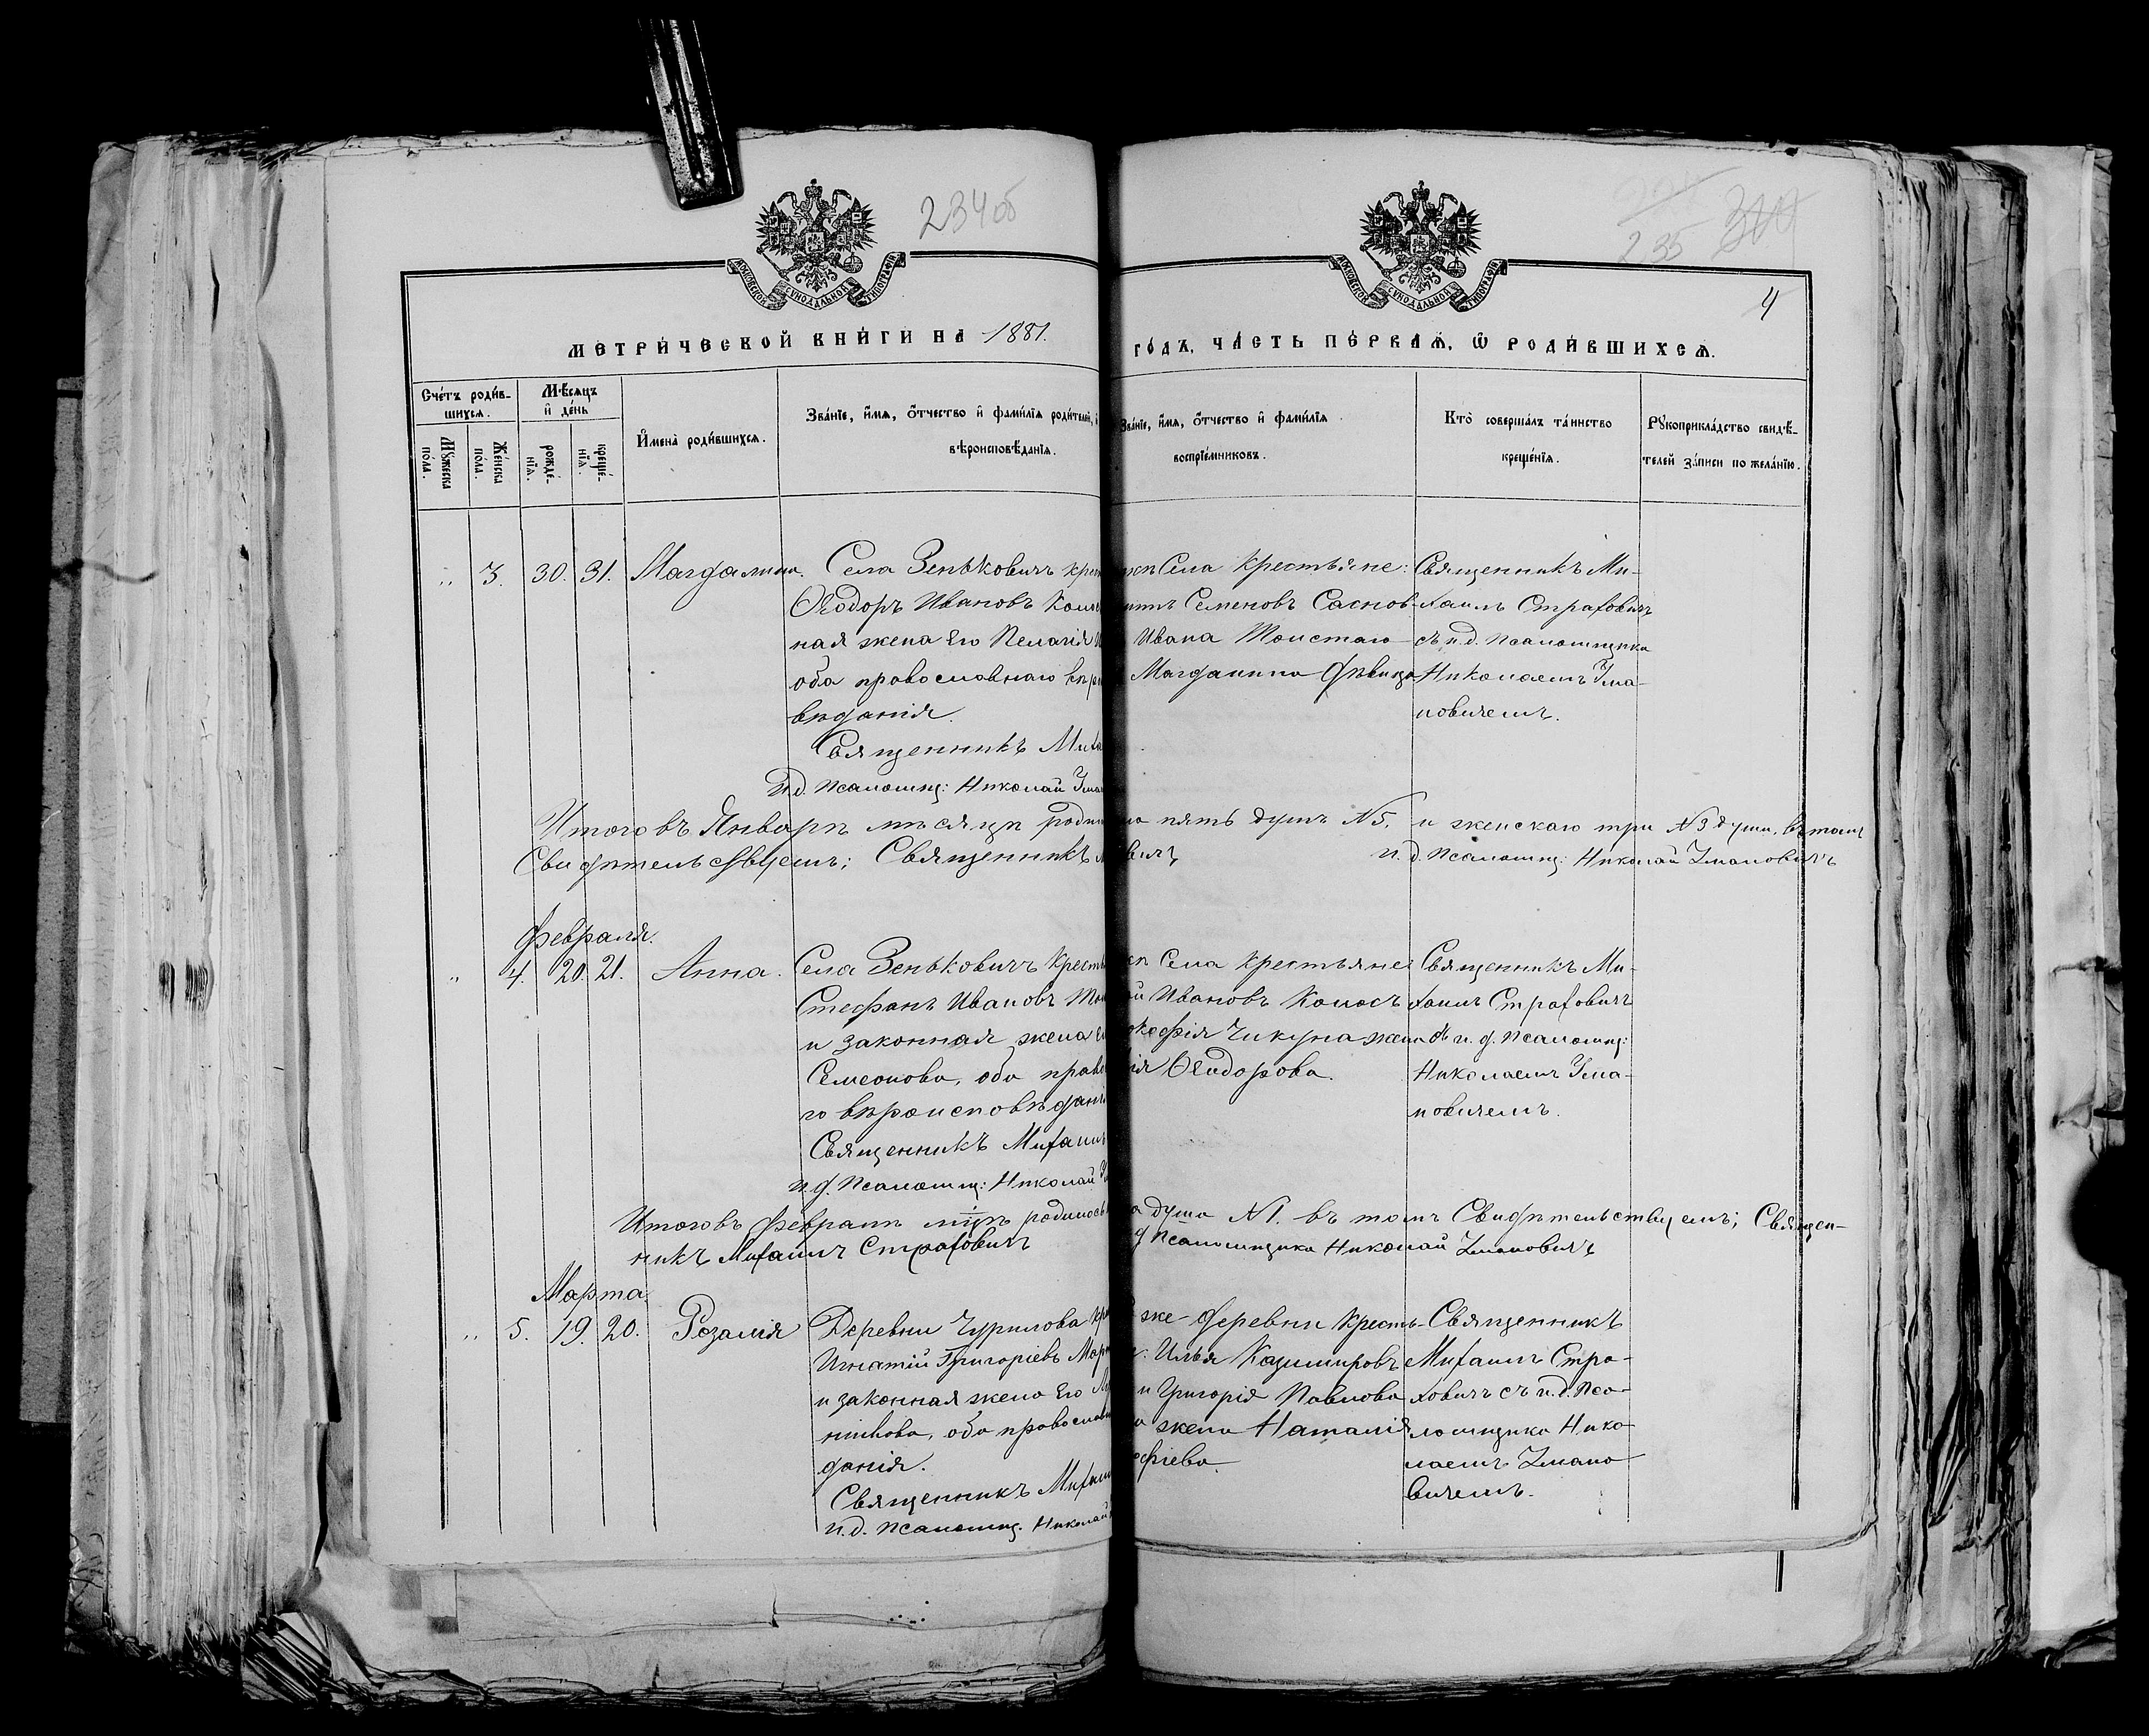 234об
235
4
МОСКОВСКОЙ СѴНОДАЛЬНОЙ ТИПОГРАФІИ
МОСКОВСКОЙ СѴНОДАЛЬНОЙ ТИПОГРАФІИ
МЕТРИЧЕСКОЙ КНИГИ НА 1881.
ГОДЪ, ЧАСТЬ ПЕРВАѦ, Ѿ РОДИВШИХСѦ.
Счетъ родив-
шихсѧ.
Мужеска пола.
Женска пола.
Мѣсяцъ
и день
рожде-
нія.
креще-
нія.
Имена родившихсѧ.
Званіе, имѧ, отчество и фамиліѧ родителей, и
вѣроисповѣданіѧ.
Званіе, имѧ, отчество и фамиліѧ
воспріемниковъ.
Кто совершалъ таинство
крещеніѧ.
Рукоприкладство свидѣ-
телей записи по желанію.
„ 3. 30. 31. Магдалина.
Села Зеньковичъ крес
Ѳеодоръ Ивановъ
ная жена Его Пелагія
оба православнаго вѣро
вѣданія.
Священникъ Миха
И.д. Псаломщ: Николай
Села крестьяне:
Семеновъ Саснов
Ивана Толстаго
Магдалина дѣвица
Священникъ Ми-
хаилъ Страховичъ
съ и.д. Псаломщика
Николаемъ Зма-
новичемъ.
Итого въ Январѣ мѣсяцѣ роди
пять душъ №5. и женскаго три №3 души. въ томъ
Свидѣтельствуемъ; Священникъ
вичъ и.д. Псаломщ: Николай Змановичъ
Февраля.
„ 4. 20. 21. Анна.
Села Зеньковичъ Кресть
Стефанъ Ивановъ
и законная жена
Семеонова, оба прав
го вѣроисповѣдані
Священникъ Михаилъ
и.д. Псаломщ: Николай
Села крестьяне:
Ивановъ Колосъ
Чикуна жена
Ѳеодорова.
Священникъ Ми-
хаилъ Страховичъ
съ и.д. Псаломщ:
Николаемъ Зма-
новичемъ.
Итого въ Февралѣ мцѣ родилось
душа №1. въ томъ Свидѣтельствуемъ; Священ-
никъ Михаилъ Страховичъ
д Псаломщика Николай Змановичъ
Марта
„ 5. 19. 20. Розалія
Деревни Чурилова кр
Игнатій Григоріевъ Мар
и законная жена Его
оба православн
данія.
Священникъ Михаил
И.д. Псаломщ. Николай
же деревни кресть-
Илья Казимировъ
и Григорія Павлова
жена Наталія
фіева.
Священникъ
Михаилъ Стра-
ховичъ съ и.д. Пса-
ломщика Нико
лаемъ Змано
вичемъ.